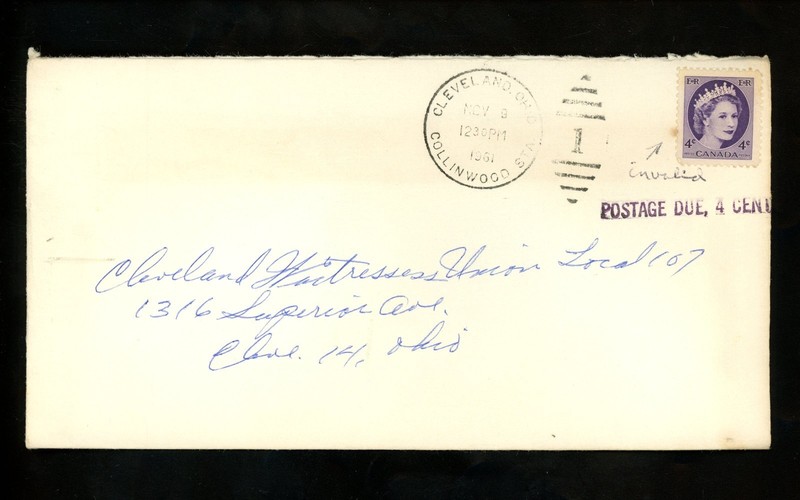 CLEVELAND, OHIO
NOV 9
1230PM
1961
COLLINWOOD STA.
1
E R E R
4¢ 4¢
CANADA
invalid
POSTAGE DUE, 4 CENT
Cleveland Waitresses Union Local 107
1316 Superior Ave.
Cleve. 14, Ohio